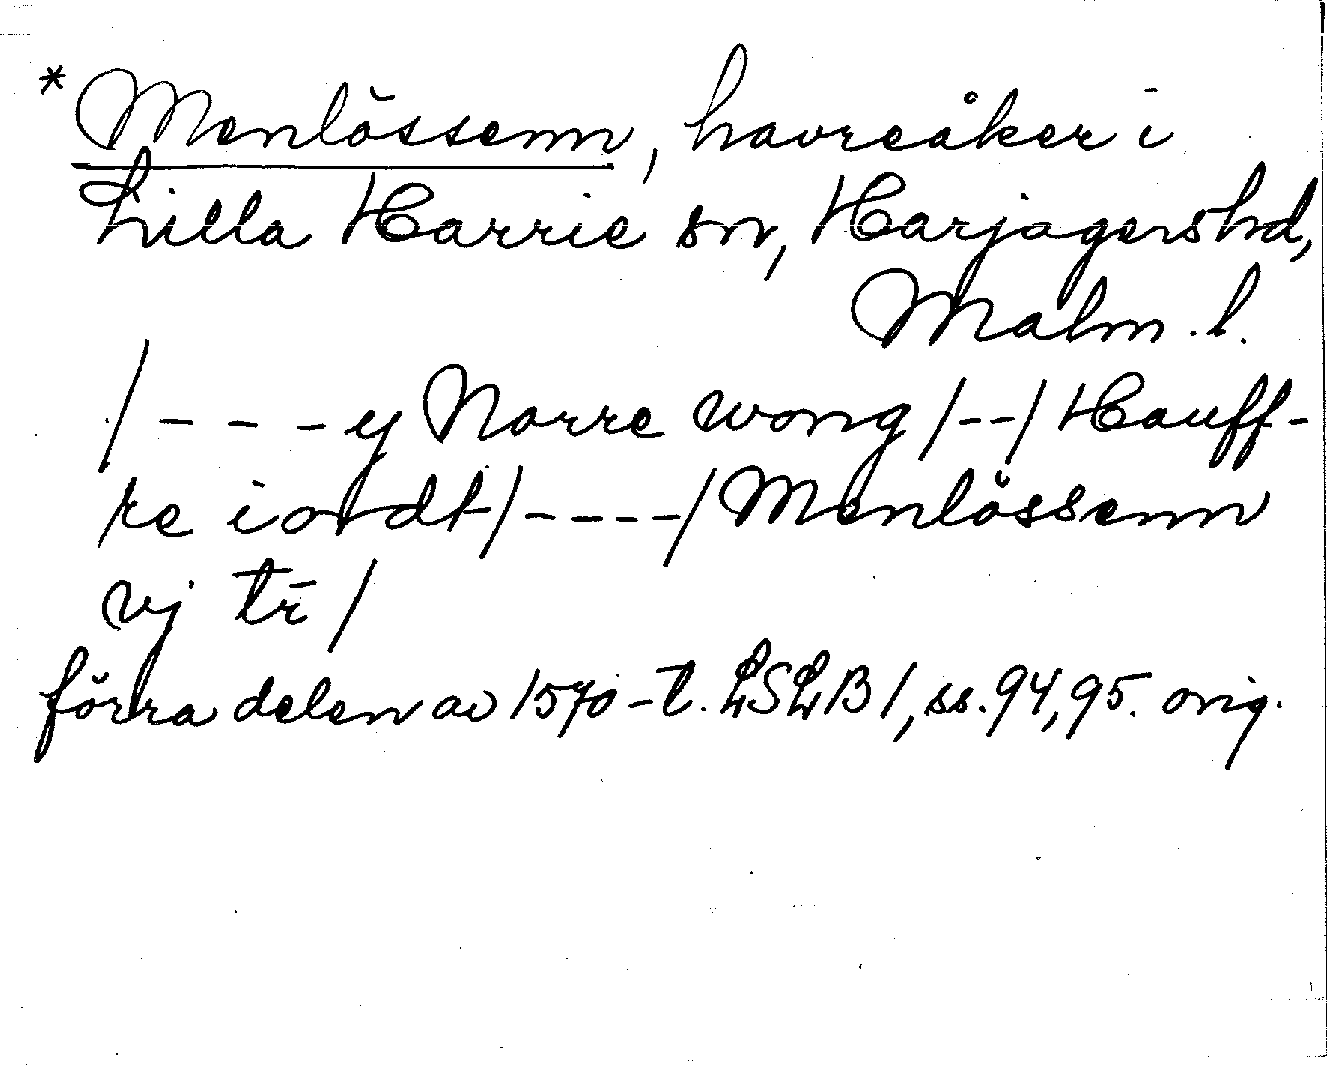 *Menlössenn, havreåker i
Lilla Harrie sn, Harjagers hd,
Malm.l.
/---y Norre wong/--/Hauff-
re iordt/----/Menlössenn
vj tr̄/
förra delen av 1570-t. LSLB1, ss.94,95. orig.